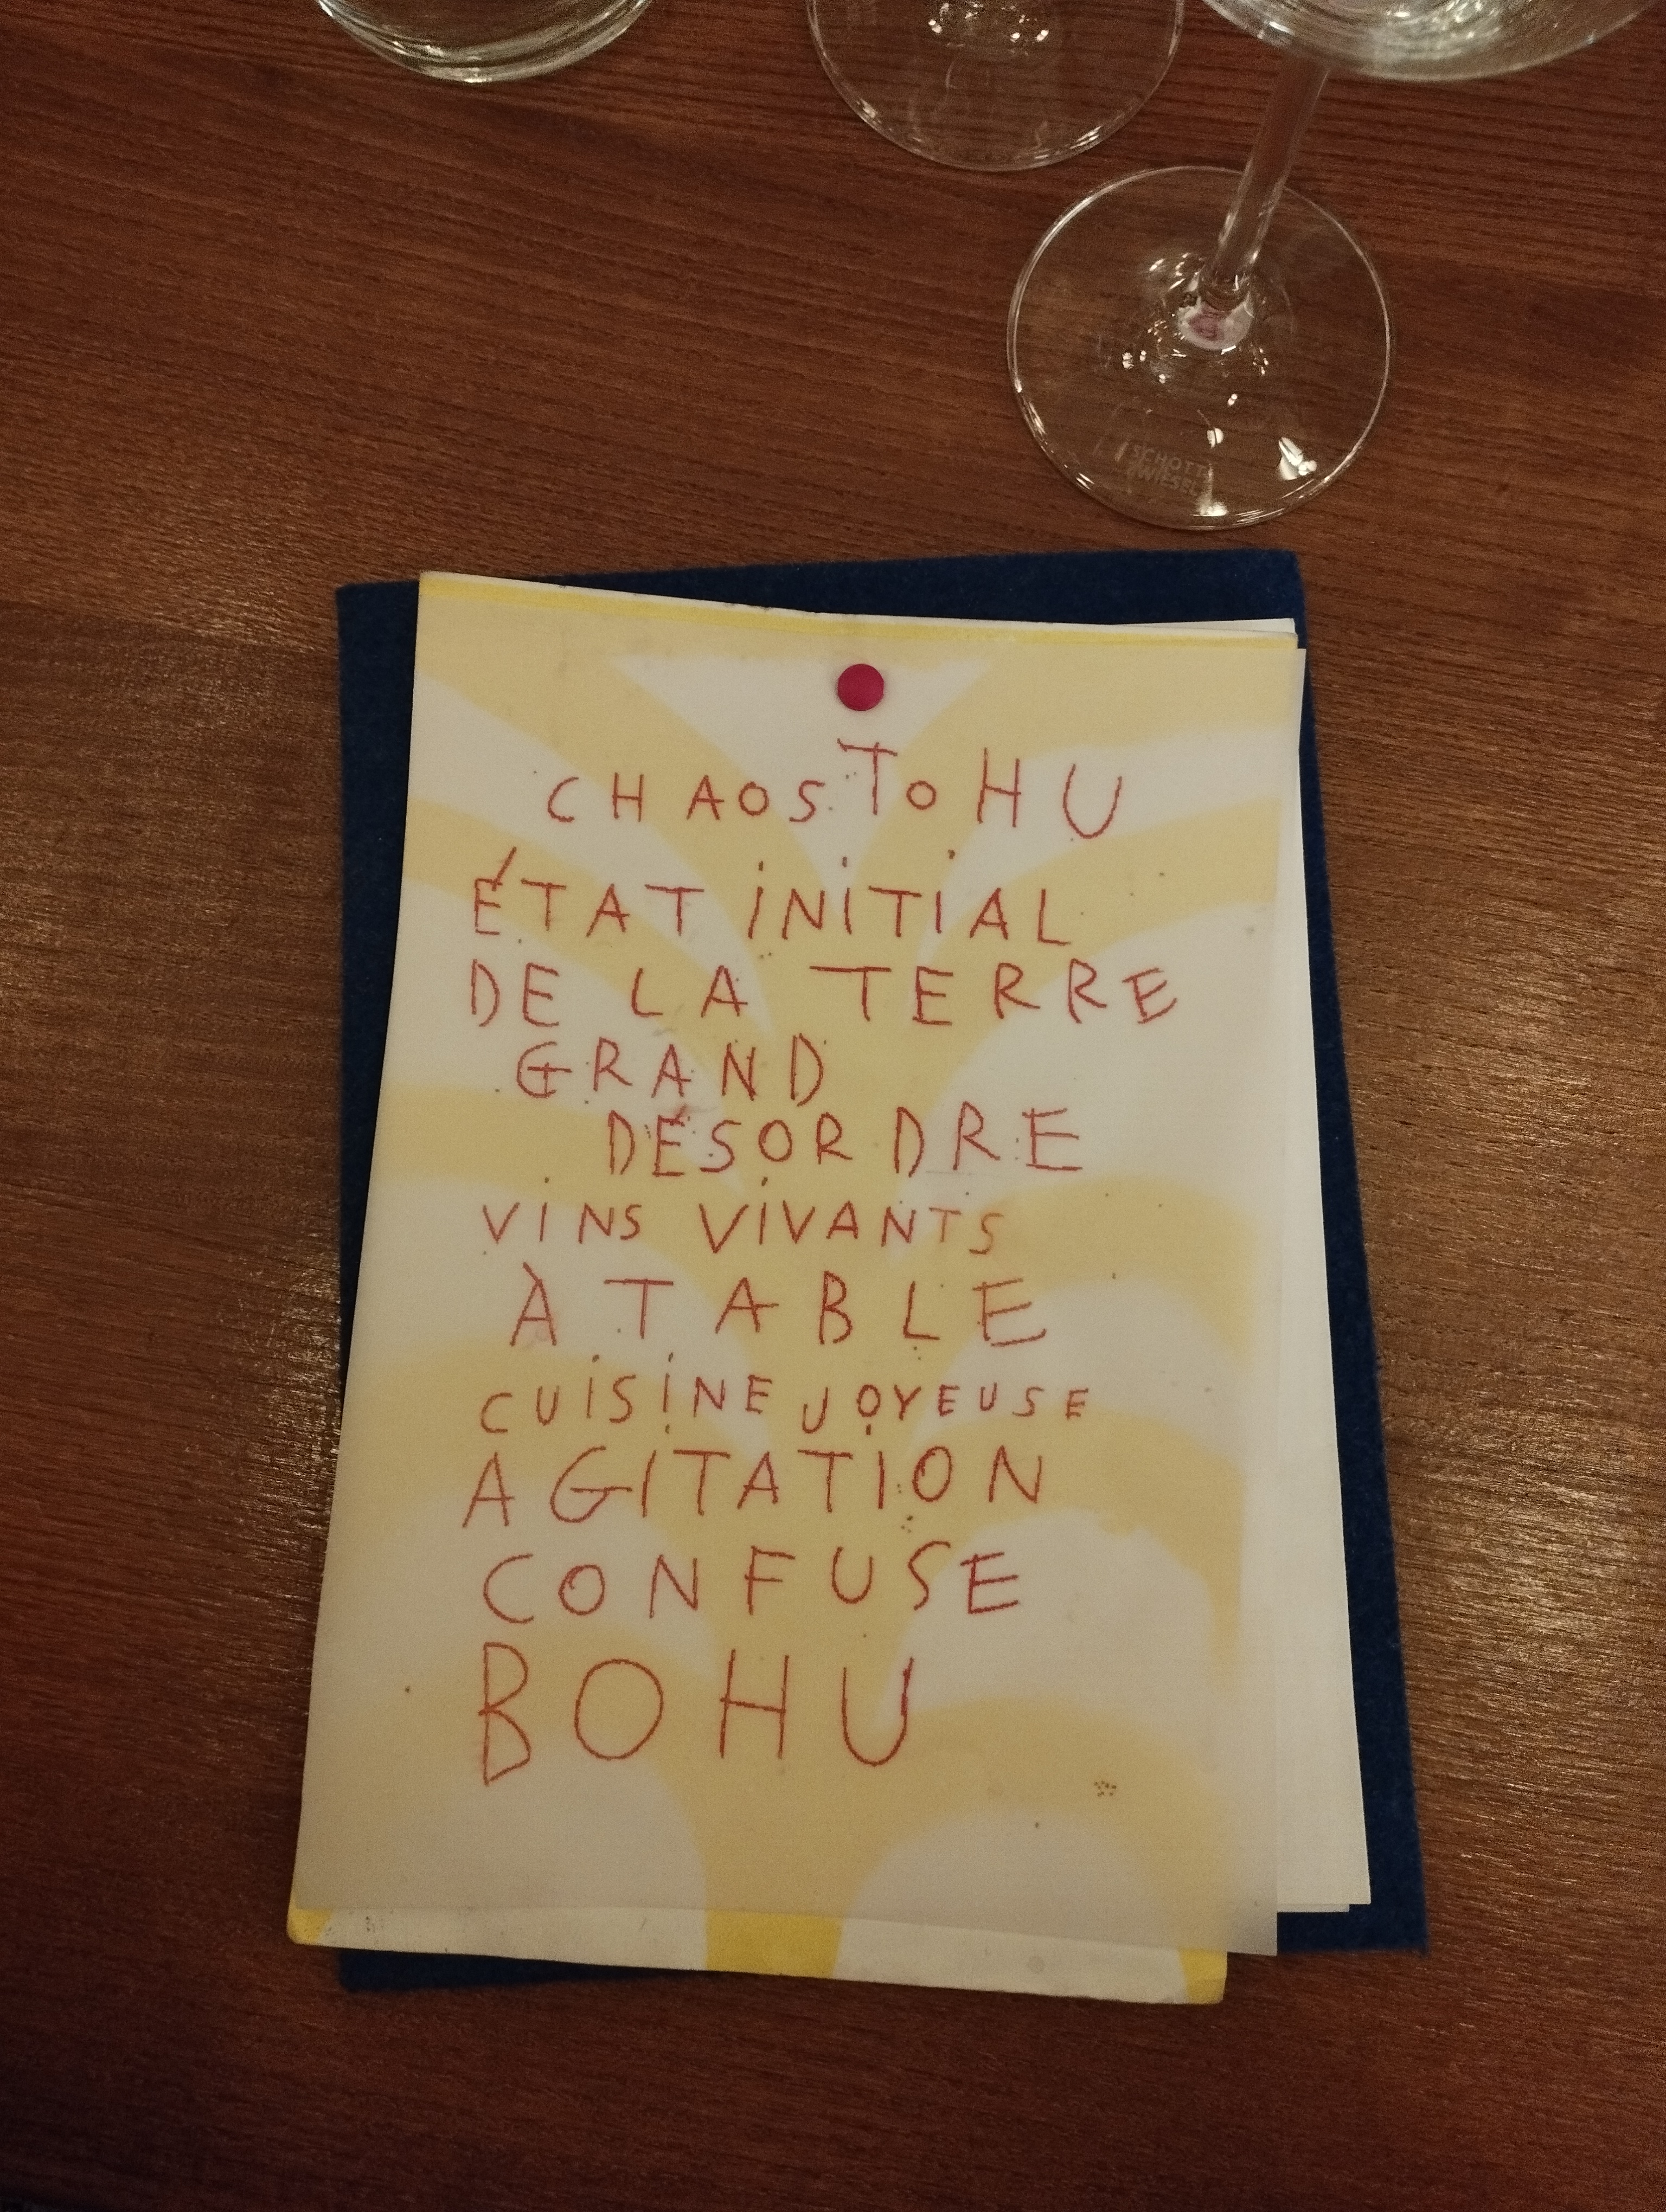 SCHOTT
ZWIESEL
CHAOS TOHU
ÉTAT INITIAL
DE LA TERRE
GRAND
DÉSORDRE
VINS VIVANTS
À TABLE
CUISINE JOYEUSE
AGITATION
CONFUSE
BOHU